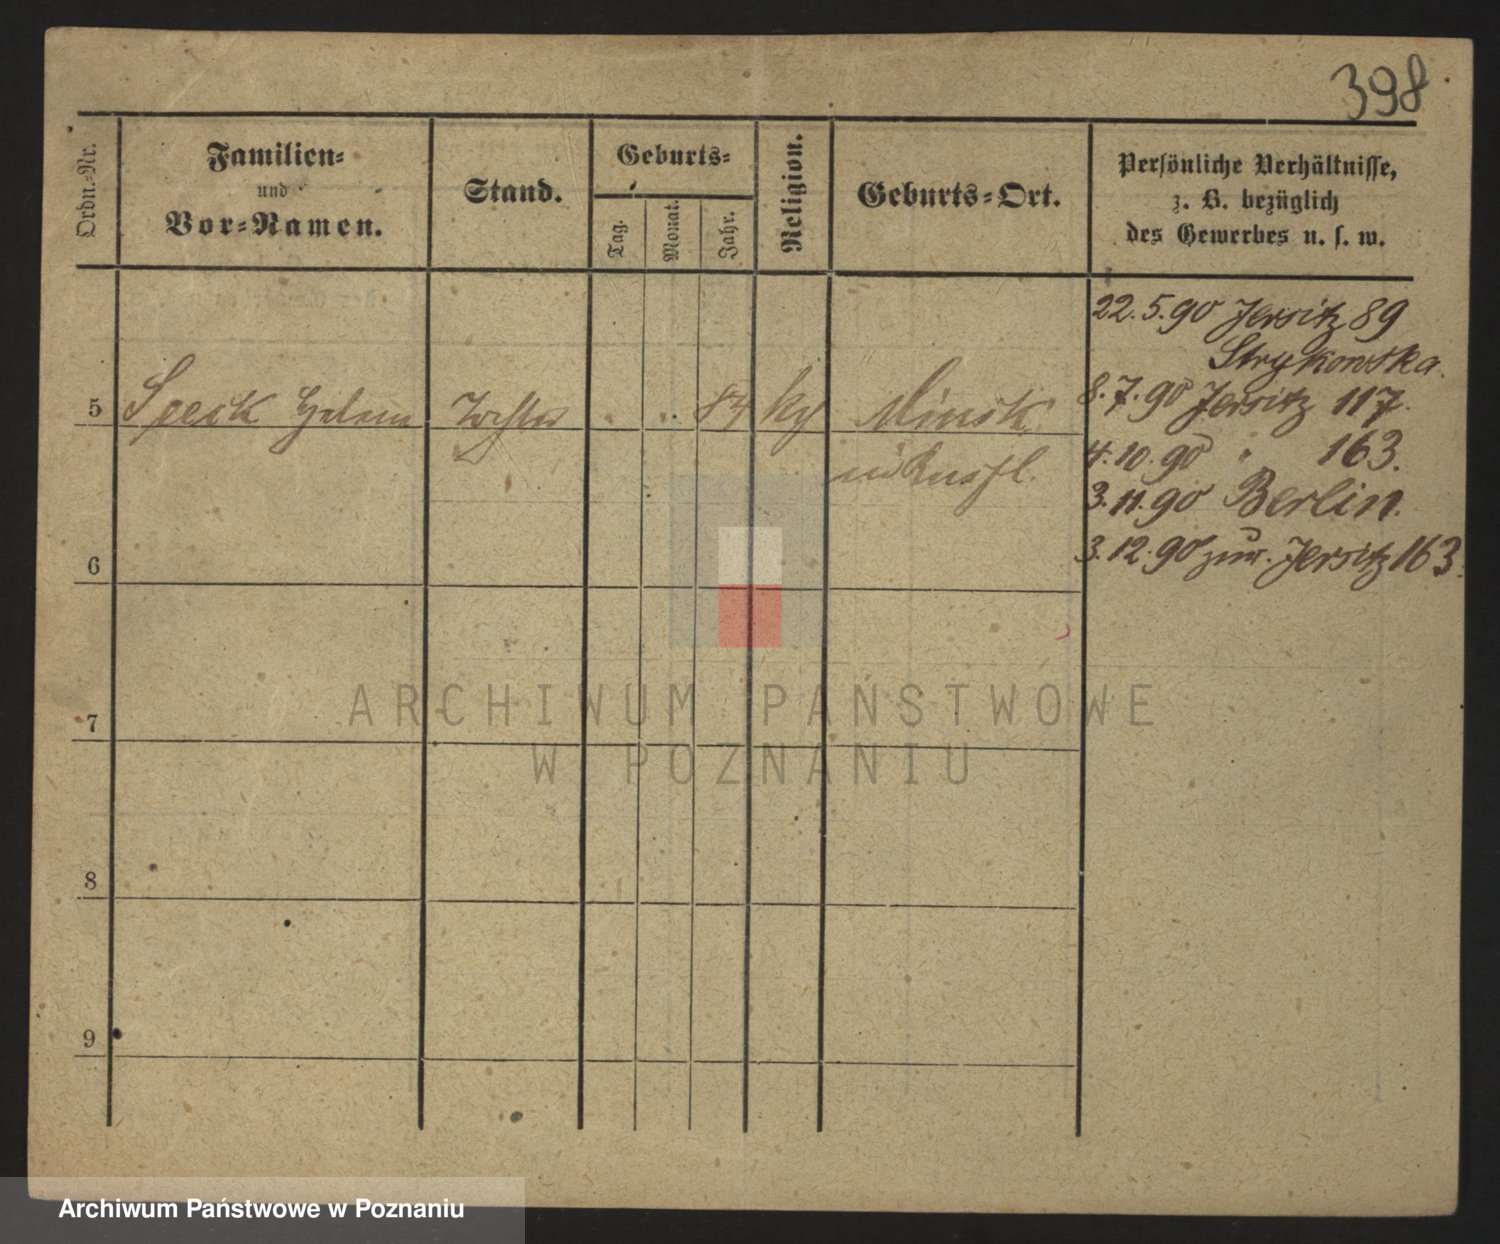 398
Ordn.-Nr.
Familien-
und
Vor-Namen.
Stand.
Geburts-
Tag.
Monat.
Jahr.
Religion.
Geburts-Ort.
Persönliche Verhältnisse,
z. B. bezüglich
des Gewerbes u. s. w.
22.5.90 Jersitz 89
Strykowska.
8.7.90 Jersitz 117.
5 Speck Helene Tochter " " 84 Minsk
in Russl.
4.10.90 " 163.
3.11.90 Berlin.
3.12.90 zur. Jersitz 163.
6
7
8
9
ARCHIWUM PAŃSTWOWE
W POZNANIU
Archiwum Państwowe w Poznaniu